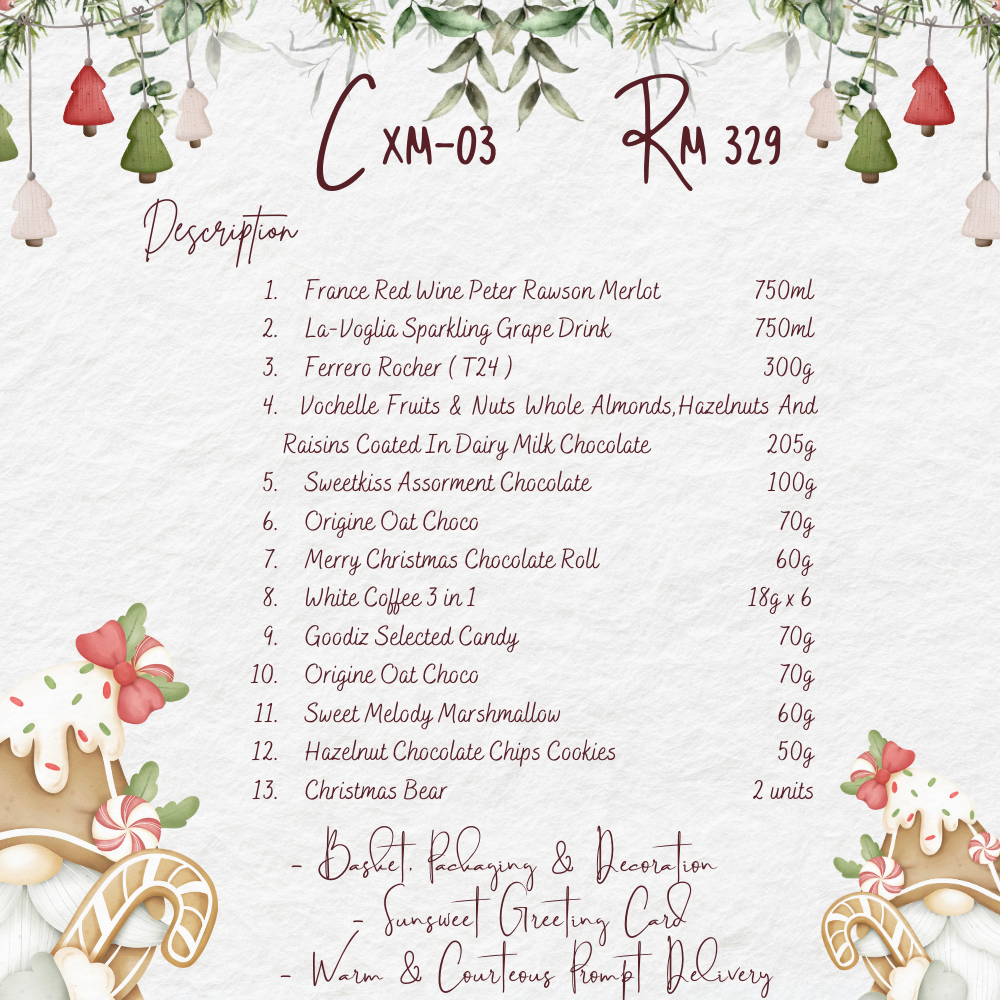 CXM-03 RM 329
Description
1. France Red Wine Peter Rawson Merlot 750ml
2. La-Voglia Sparkling Grape Drink 750ml
3. Ferrero Rocher ( T24 ) 300g
4. Vochelle Fruits & Nuts Whole Almonds,Hazelnuts And
Raisins Coated In Dairy Milk Chocolate 205g
5. Sweetkiss Assorment Chocolate 100g
6. Origine Oat Choco 70g
7. Merry Christmas Chocolate Roll 60g
8. White Coffee 3 in 1 18g x 6
9. Goodiz Selected Candy 70g
10. Origine Oat Choco 70g
11. Sweet Melody Marshmallow 60g
12. Hazelnut Chocolate Chips Cookies 50g
13. Christmas Bear 2 units
- Basket, Packaging & Decoration
- Sunsweet Greeting Card
- Warm & Courteous Prompt Delivery